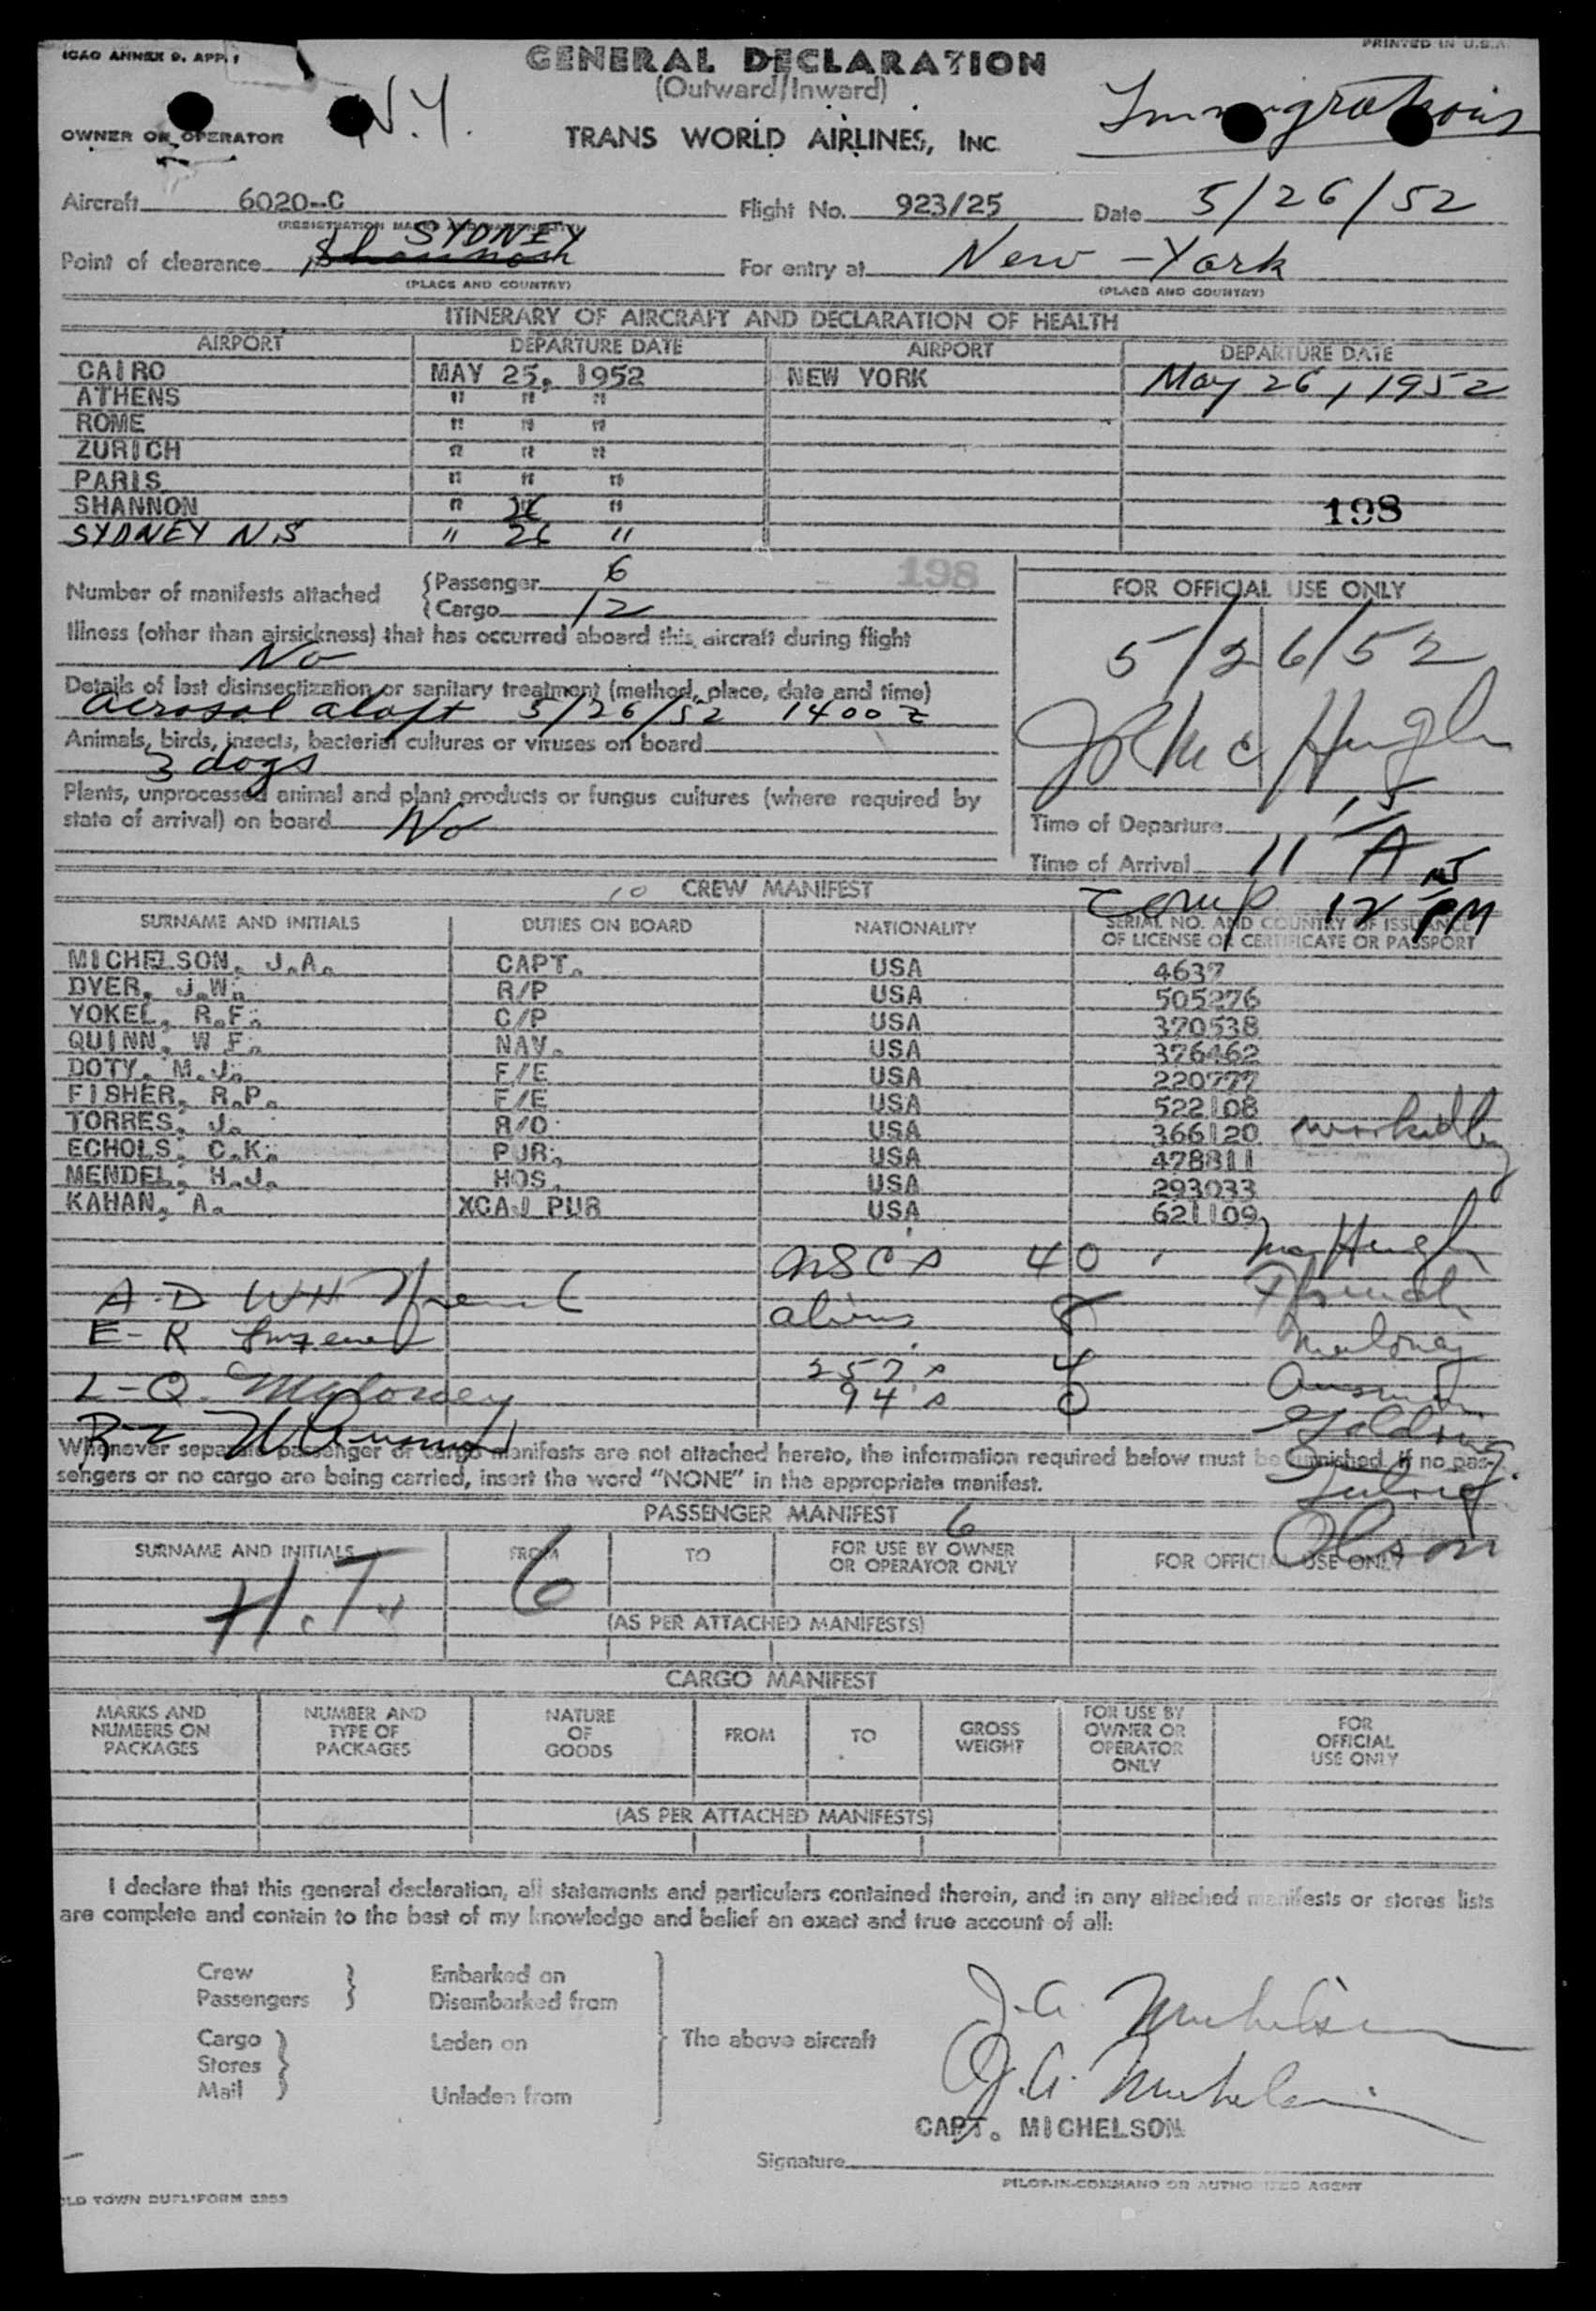 ICAO ANNEX 9. APP. 1
PRINTED IN U.S.A.
GENERAL DECLARATION
(Outward/Inward)
N.Y.
Immigrations
OWNER OR OPERATOR
TRANS WORLD AIRLINES, INC.
Aircraft 6020-C Flight No. 923/25 Date 5/26/52
(REGISTRATION MARKS AND NATIONALITY)
SYDNEY
Point of clearance Shannon For entry at New-York
(PLACE AND COUNTRY) (PLACE AND COUNTRY)
ITINERARY OF AIRCRAFT AND DECLARATION OF HEALTH
AIRPORT DEPARTURE DATE AIRPORT DEPARTURE DATE
CAIRO MAY 25, 1952 NEW YORK May 26, 1952
ATHENS " " "
ROME " " "
ZURICH " " "
PARIS " " "
SHANNON " 26 "
198
SYDNEY N.S " 26 "
Number of manifests attached {Passenger 6
{Cargo 12
198
FOR OFFICIAL USE ONLY
5/26/52
Illness (other than airsickness) that has occurred aboard this aircraft during flight
No
Details of last disinsectization or sanitary treatment (method, place, date and time)
aerosol aloft 5/26/52 1400 Z
Animals, birds, insects, bacterial cultures or viruses on board
3 dogs
Plants, unprocessed animal and plant products or fungus cultures (where required by
state of arrival) on board No
Time of Departure
Time of Arrival 11 15 A
Comp 12 PM
10 CREW MANIFEST
SURNAME AND INITIALS DUTIES ON BOARD NATIONALITY SERIAL NO. AND COUNTRY OF ISSUANCE
OF LICENSE OR CERTIFICATE OR PASSPORT
MICHELSON, J.A. CAPT. USA 4637
DYER, J.W. R/P USA 505276
YOKEL, R.F. C/P USA 370538
QUINN, W F. NAV. USA 376462
DOTY, M.J. F/E USA 220777
FISHER, R.P. F/E USA 522108
TORRES, J. R/O USA 366120
ECHOLS, C.K. PUR. USA 478811
MENDEL, H.J. HOS. USA 293033
KAHAN, A. XCAJ PUR USA 621109
worked by
uscs 40 McHugh
A-D WH
aliens 8
E-R
Maloney
257's 4
L-Q Maloney
94's 0
Golding
R-Z
Whenever separate passenger or cargo manifests are not attached hereto, the information required below must be furnished. If no pas-
sengers or no cargo are being carried, insert the word "NONE" in the appropriate manifest.
PASSENGER MANIFEST 6
Olson
SURNAME AND INITIALS FROM TO FOR USE BY OWNER
OR OPERATOR ONLY FOR OFFICIAL USE ONLY
H.T. 6
(AS PER ATTACHED MANIFESTS)
CARGO MANIFEST
MARKS AND
NUMBERS ON
PACKAGES
NUMBER AND
TYPE OF
PACKAGES
NATURE
OF
GOODS
FROM
TO
GROSS
WEIGHT
FOR USE BY
OWNER OR
OPERATOR
ONLY
FOR
OFFICIAL
USE ONLY
(AS PER ATTACHED MANIFESTS)
I declare that this general declaration, all statements and particulars contained therein, and in any attached manifests or stores lists
are complete and contain to the best of my knowledge and belief an exact and true account of all:
Crew Embarked on
Passengers Disembarked from
Cargo Laden on The above aircraft
Stores
Mail Unladen from
J.A. Michelson
J.A. Michelson
CAPT. MICHELSON
Signature
PILOT-IN-COMMAND OR AUTHORIZED AGENT
OLD TOWN DUPLIFORM